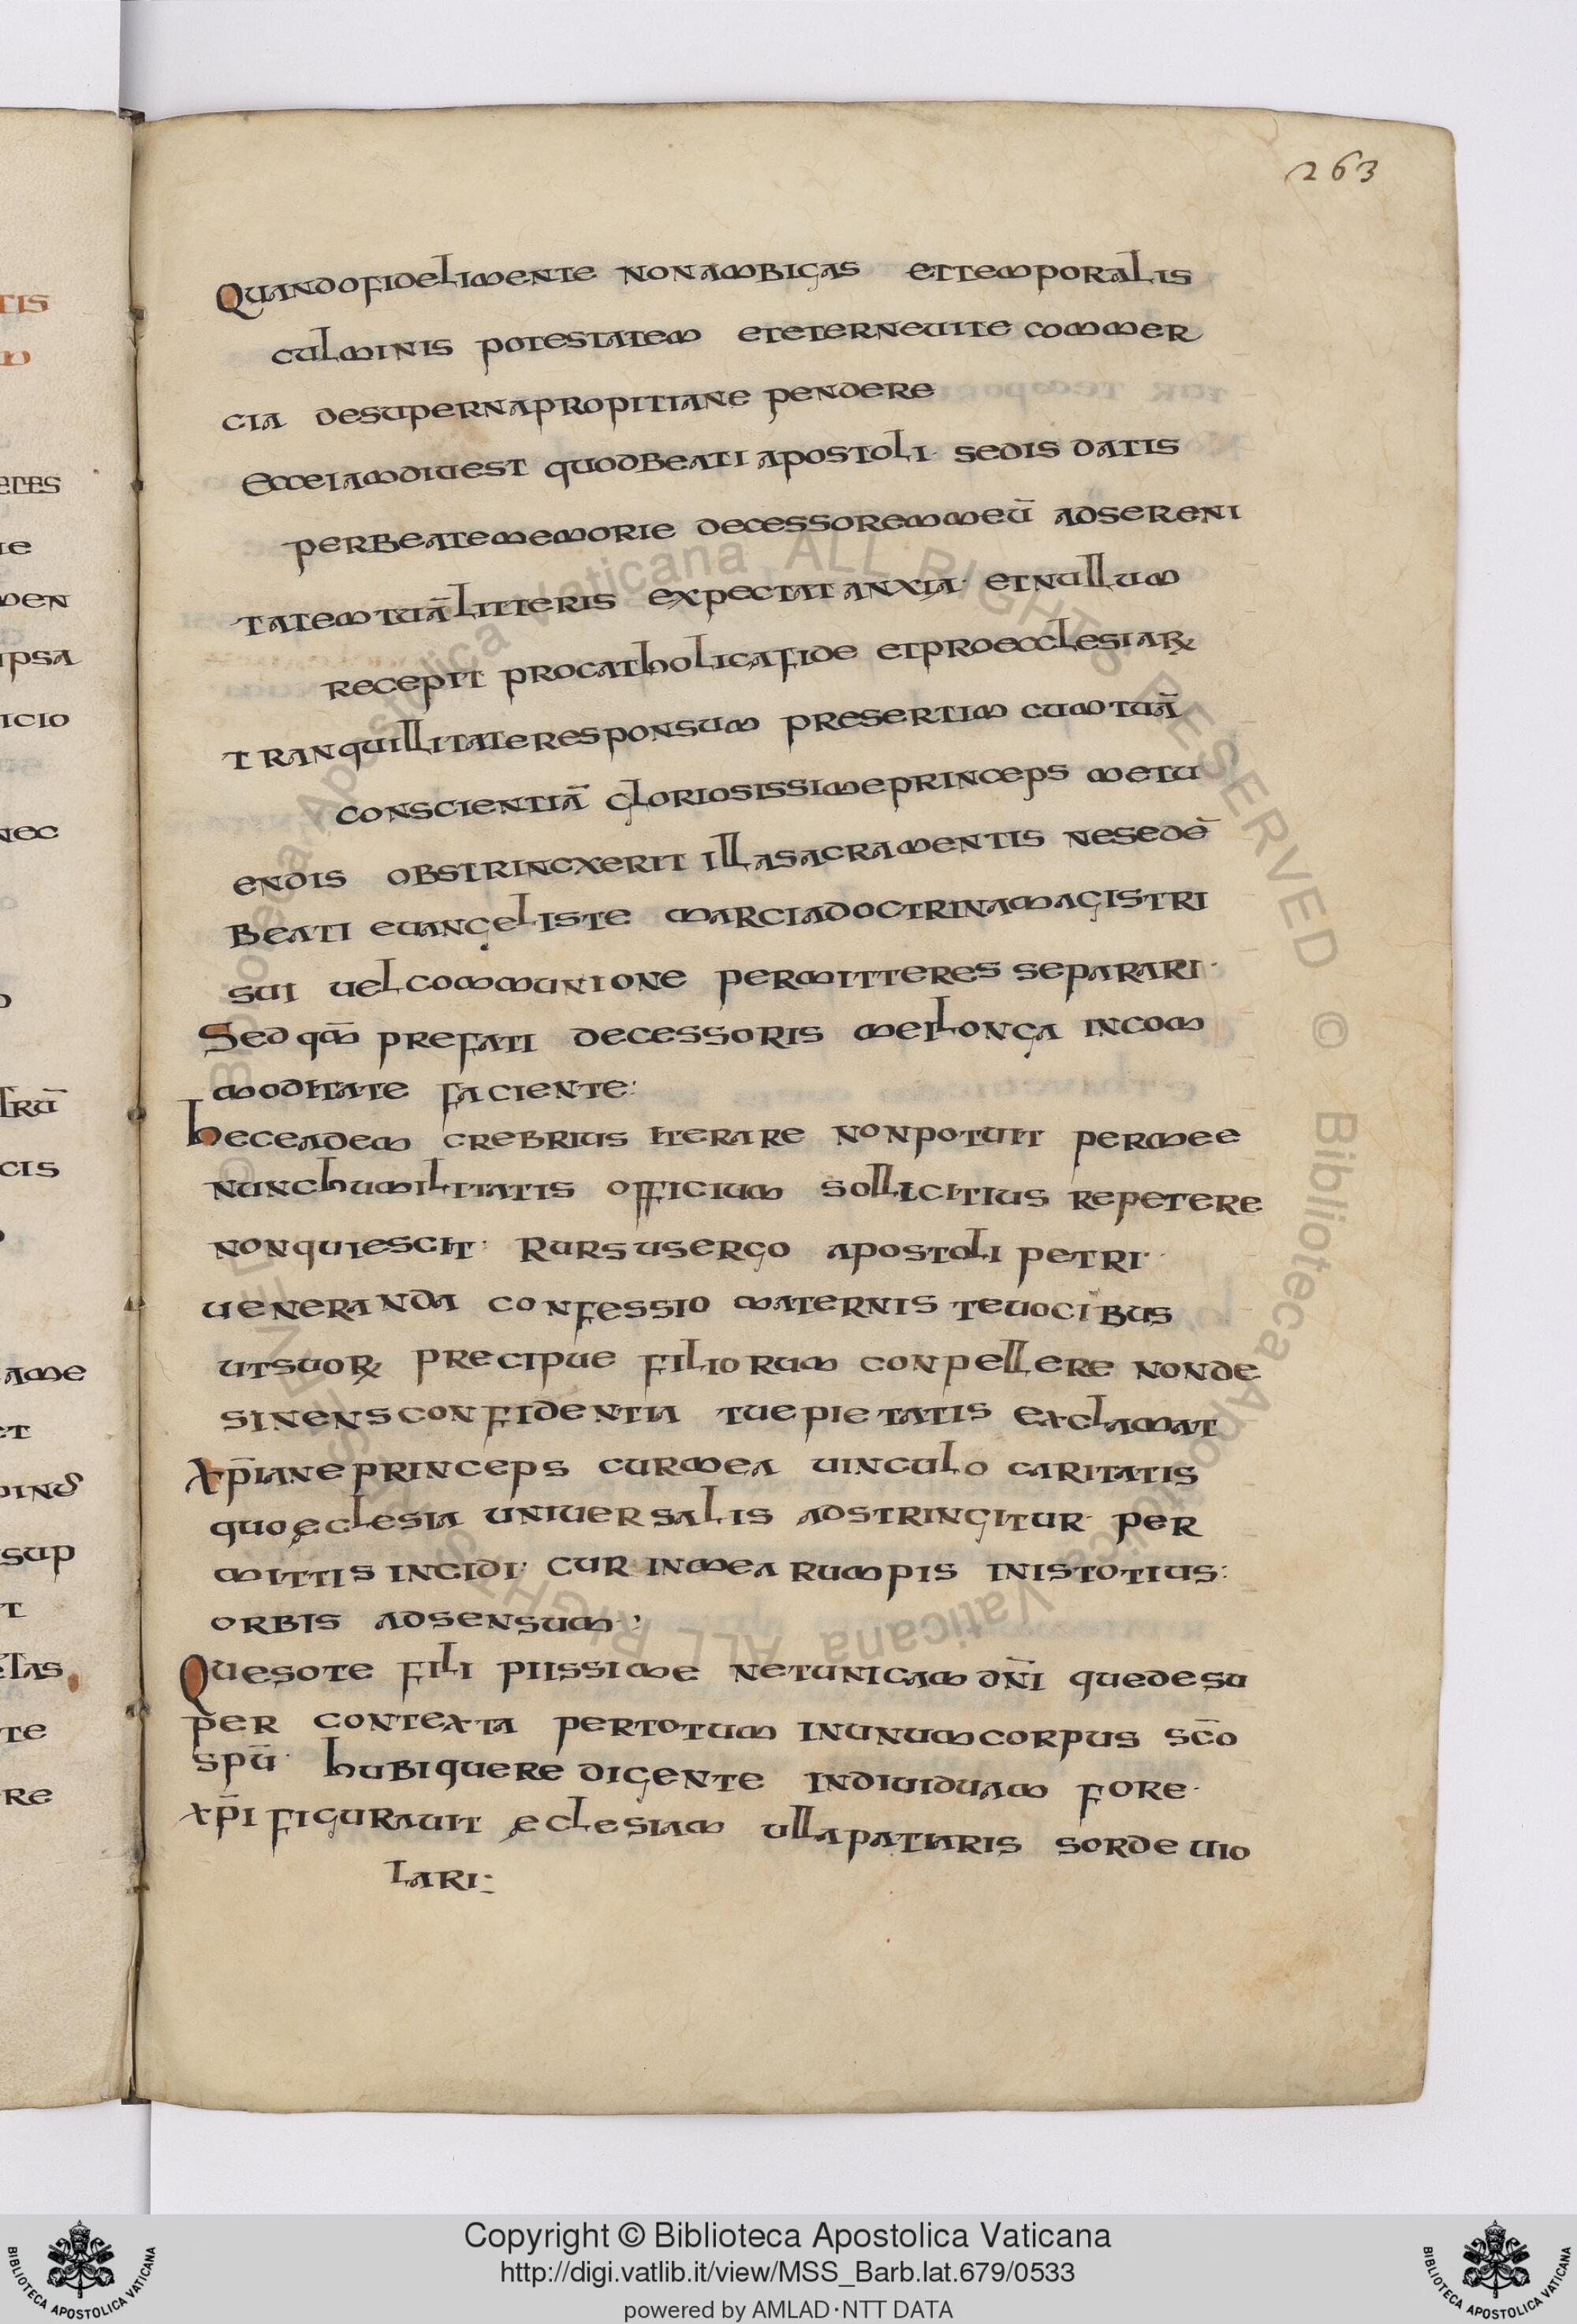 263
quandofidelimente nonambigas ettemporalis
culminis potestatem eteterneuite commer
cia desupernapropitiane pendere
ecceiamdiuest quodbeati apostoli· sedis datis
perbeatememorie decessoremmeū adsereni
tatemtuālitteris expectat anxia· etnullum
recepit procatholicafide etproecclesiaꝝ
tranquillitateresponsum presertim cumtuā
conscientiā gloriosissimeprinceps metu
endis obstrincxerit illasacramentis nesedē
beati euangeliste marciadoctrinamagistri
sui uelcommunione permitteres separari·
Sed qm̄ prefati decessoris meilonga incom
moditate faciente:
heceadem crebrius iterare nonpotuit permee
nunchumilitatis officium sollicitius repetere
nonquiescit· Rursusergo apostoli petri·
ueneranda confessio maternis teuocibus
utsuoꝝ precipue filiorum conpellere nonde
sinensconfidentia tuepietatis exclamat
xp̄ianeprinceps curmea uinculo caritatis
quoęclesia uniuersalis adstringitur· per
mittis incidi· cur inmea rumpis inistotius:
orbis adsensum·:
Quesote fili piissime netunicam dn̄i quedesu
per contexta pertotum inunumcorpus sc̄o
spū· hubiquere digente indiuiduam fore·
xp̄i figurauit ęclesiam ullapatiaris sorde uio
lari:
tis
eres
ie
men
ipsa
icio
nec
trū
cis
ame
et
sup
t
etas
te
re
Copyright © Biblioteca Apostolica Vaticana
http://digi.vatlib.it/view/MSS_Barb.lat.679/0533
powered by AMLAD·NTT DATA
BIBLIOTECA APOSTOLICA VATICANA
BIBLIOTECA APOSTOLICA VATICANA
© Biblioteca Apostolica Vaticana ALL RIGHTS RESERVED © Biblioteca Apostolica Vaticana ALL RIGHTS RESERVED